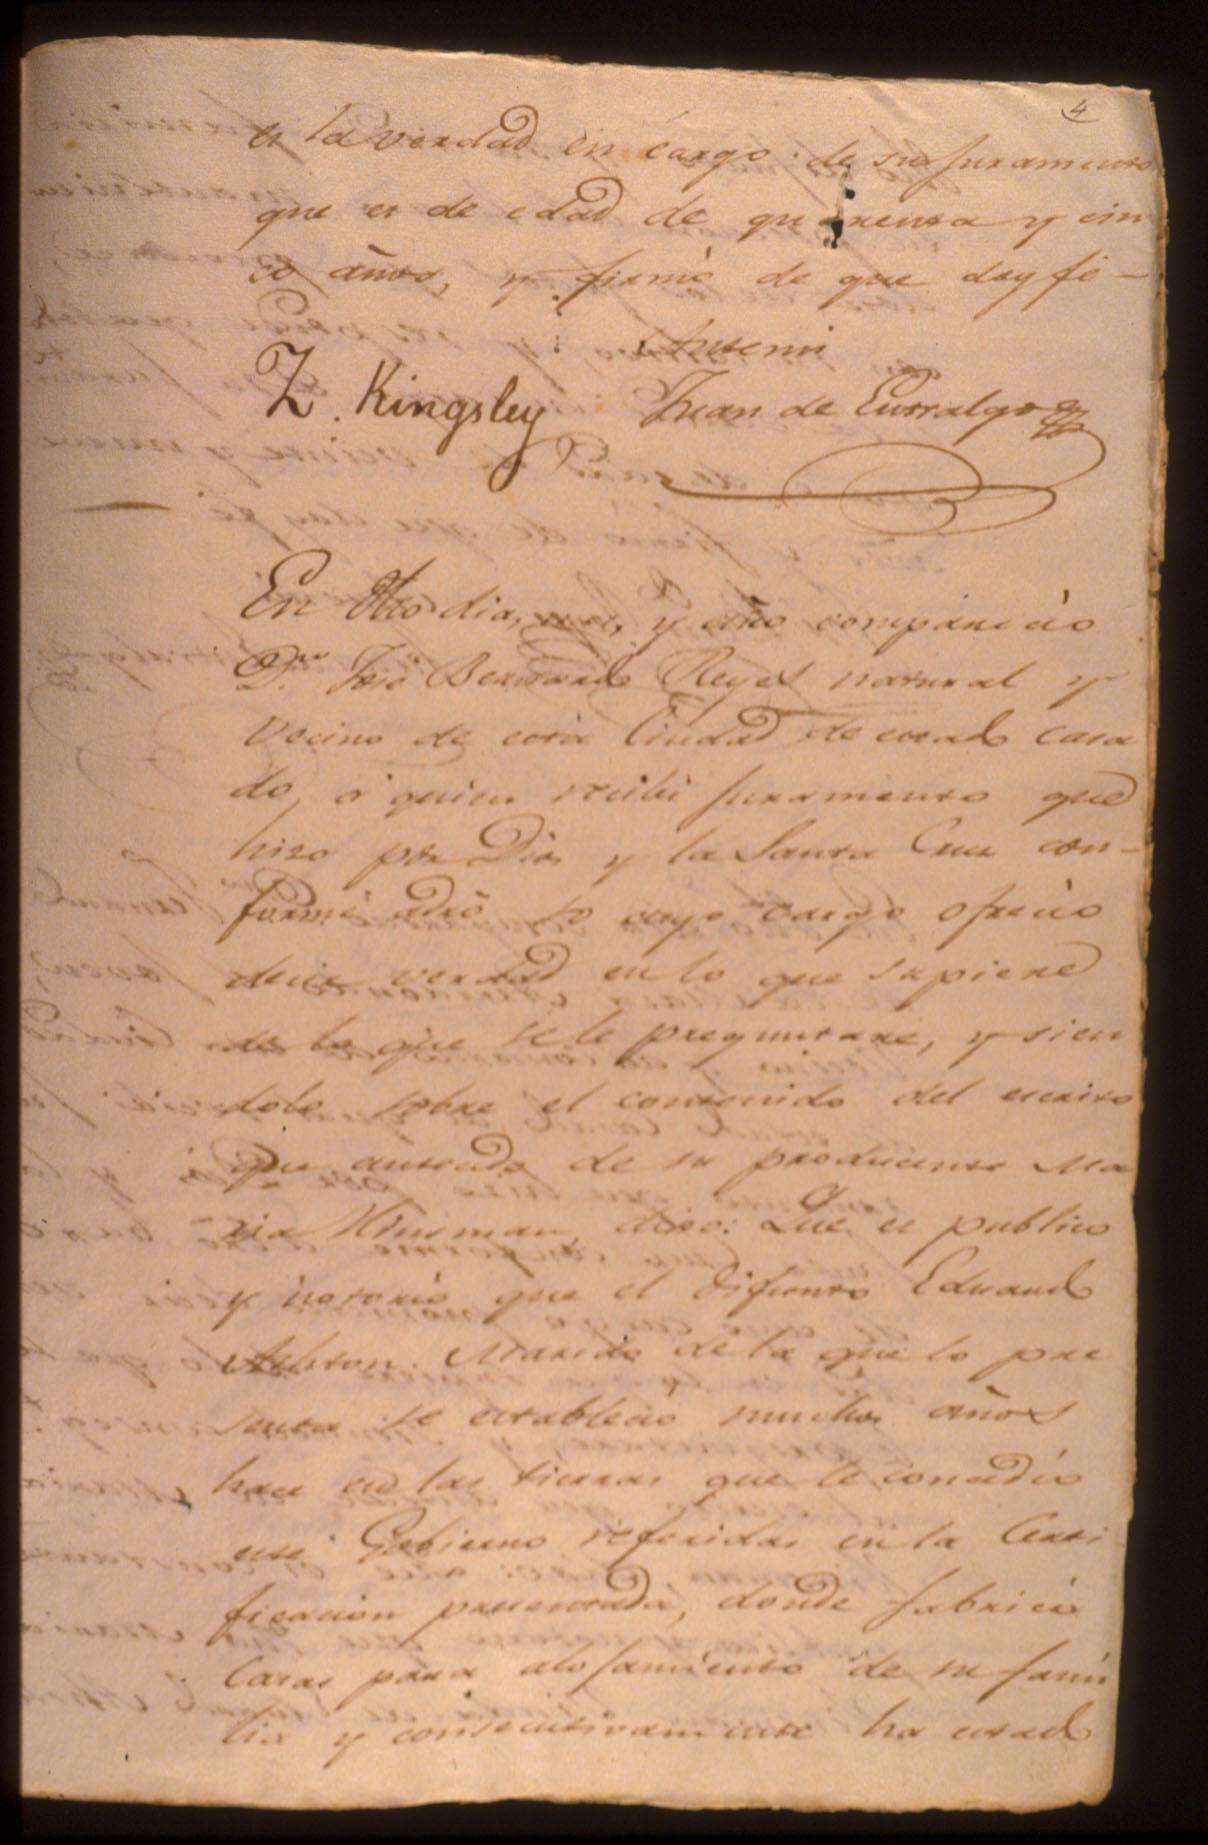 4
es la verdad en cargo de su Juramento
que es de edad de quarenta y cin
co años, y firmó de que doy fé —
Antemi
Z. Kingsley Juan de Entralgo
En dho dia, mes, y año comparecio
Dn José Bernardo Reyes natural y
vecino de esta Ciudad de estado casa
do, á quien recibi Juramento que
hizo por Dios y la Santa Cruz con-
forme adro so cuyo cargo ofrecio
decir verdad en lo que supiere
de lo que se le preguntare, y sien
dolo sobre el contenido del escrito
que antecede de su producente Ma
ria Hinsman, dixo: Que es publico
y notorio que el difunto Eduardo
Ashton Marido de la que lo pre
senta se establecio muchos años
hace en las tierras que le concedio
este Gobierno referidas en la Certi
ficacion presentada, donde fabricó
Casas para alojamiento de su fami
lia y consecutivamente ha estado